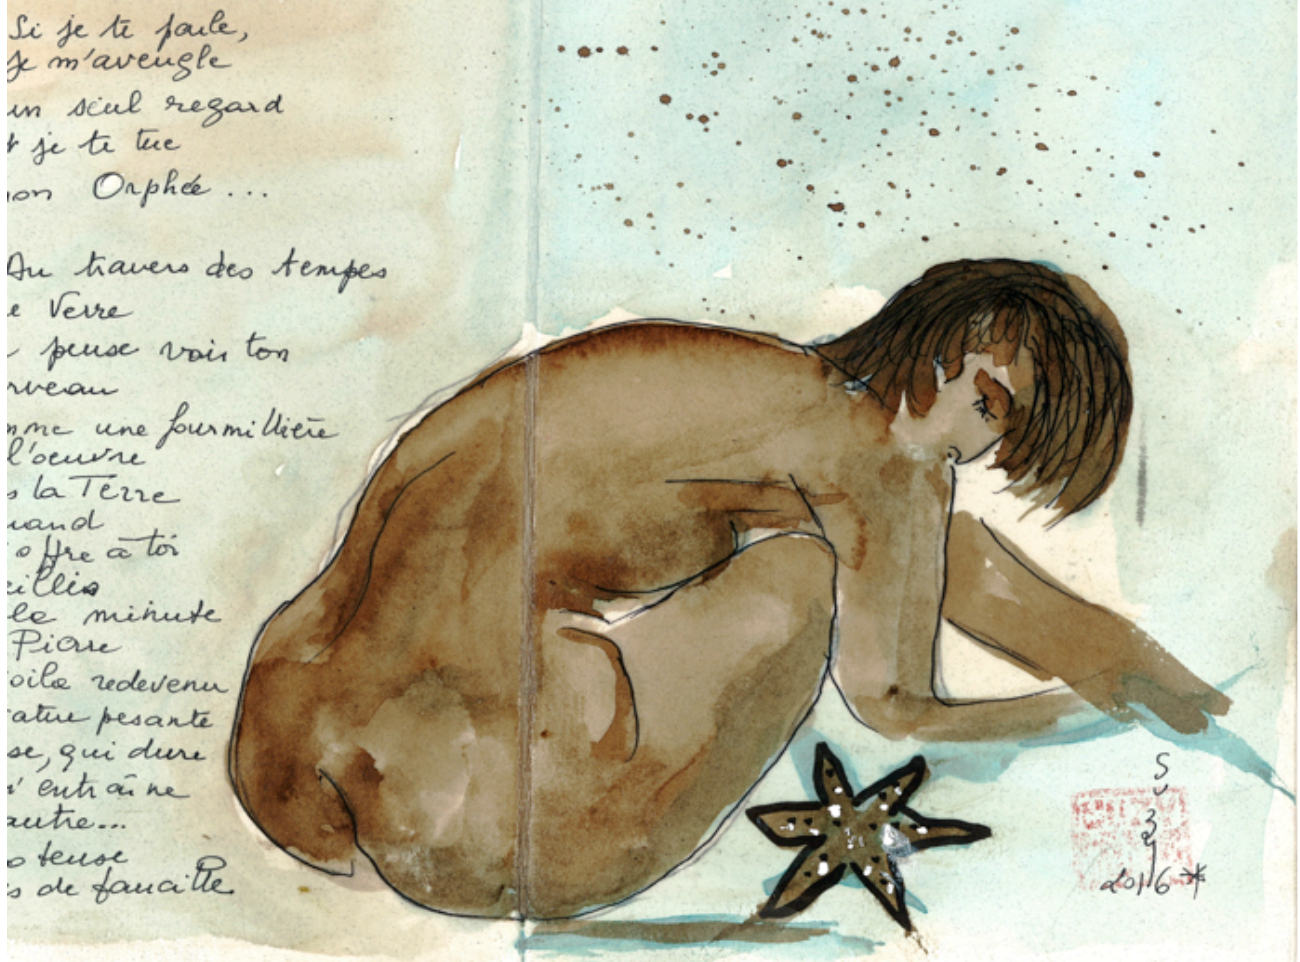 Si je te parle,
Je m'aveugle
un seul regard
t je te tue
mon Orphée ...
Au travers des tempes
e Verre
pense voir ton
rveau
mme une fourmillière
l'oeuvre
s la Terre
uand
offre à toi
eillis
la minute
Pierre
oila redevenu
atue pesante
se, qui dure
m'entraîne
autre...
tense
s de faucille
Suzy
2016*